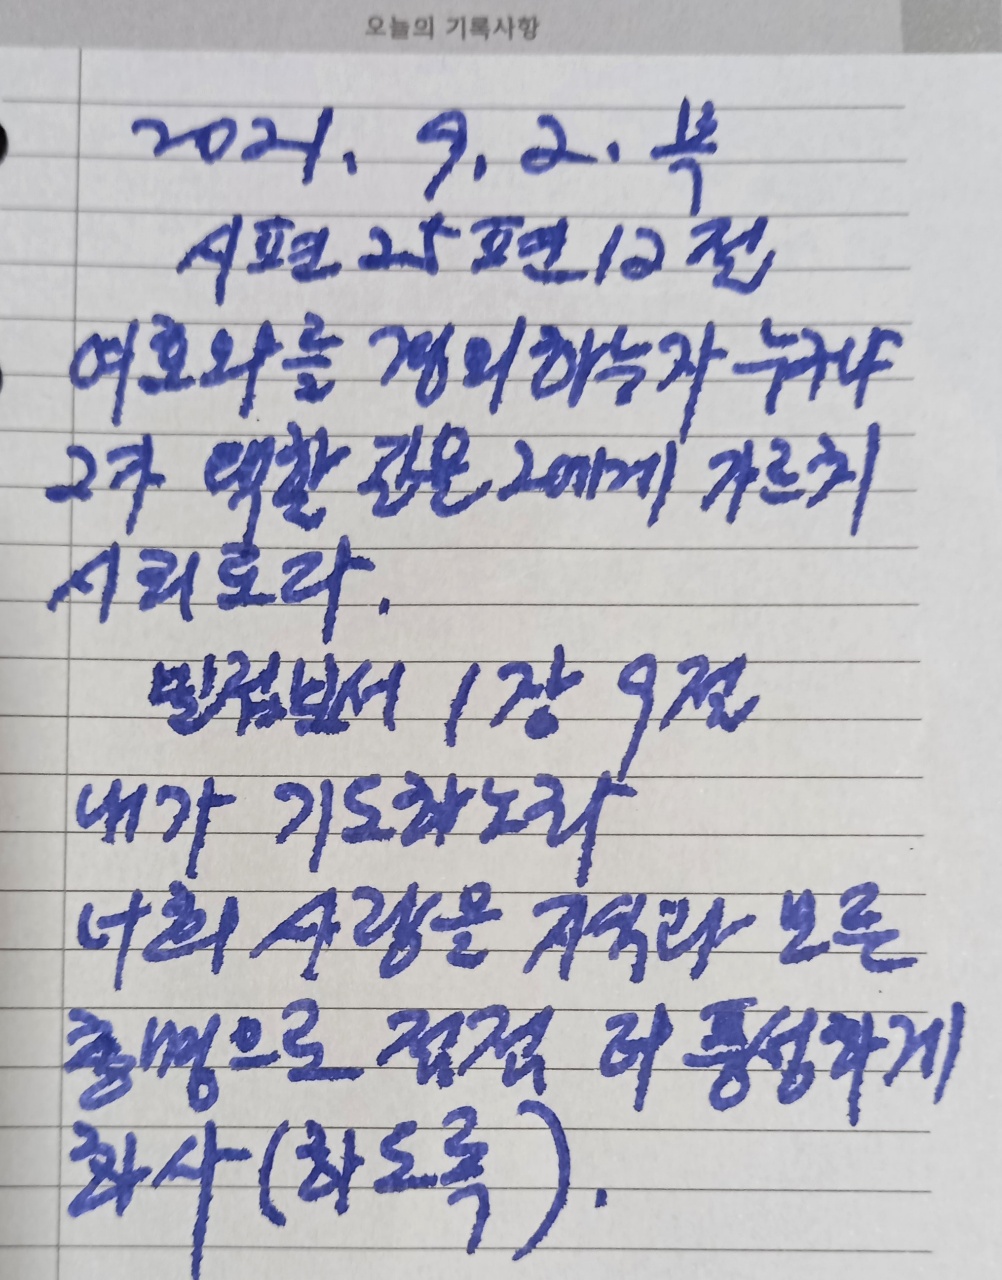 오늘의 기록사항
2021. 9. 2. 목
시편 25편 12절
여호와를 경외하는자 누구냐
그가 택할 길을 그에게 가르치
시리로다.
빌립보서 1장 9절
내가 기도하노라
너희 사랑을 지식과 모든
총명으로 점점 더 풍성하게
하사 (하도록).